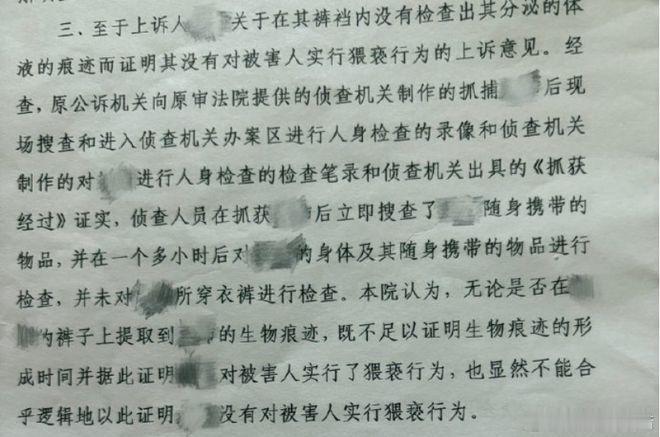 三、至于上诉人 关于在其裤裆内没有检查出其分泌的体
液的痕迹而证明其没有对被害人实行猥亵行为的上诉意见。经
查，原公诉机关向原审法院提供的侦查机关制作的抓捕 后现
场搜查和进入侦查机关办案区进行人身检查的录像和侦查机关
制作的对 进行人身检查的检查笔录和侦查机关出具的《抓获
经过》证实，侦查人员在抓获 后立即搜查了 随身携带的
物品，并在一个多小时后对 的身体及其随身携带的物品进行
检查，并未对 所穿衣裤进行检查。本院认为，无论是否在
的裤子上提取到 的生物痕迹，既不足以证明生物痕迹的形
成时间并据此证明 对被害人实行了猥亵行为，也显然不能合
乎逻辑地以此证明 没有对被害人实行猥亵行为。